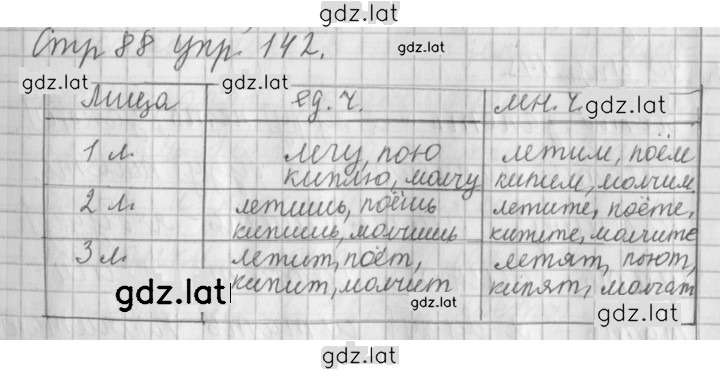 gdz.lat
Стр 88 упр 142.
gdz.lat
gdz.lat
Лица ед. ч. мн. ч. gdz.lat
1 л. лечу, пою летим, поём
киплю, молчу кипим, молчим
2 л. летишь, поёшь летите, поёте,
кипишь, молчишь кипите, молчите
3 л. летит, поёт, летят, поют,
кипит, молчит кипят, молчат
gdz.lat gdz.lat gdz.lat
gdz.lat